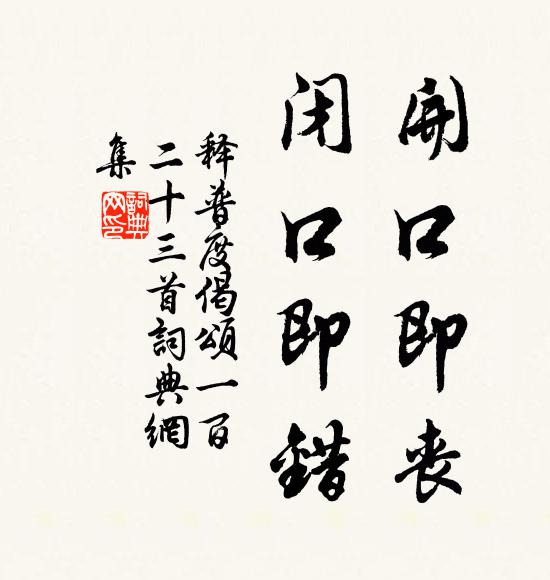 開口即喪
閉口即錯
释普度偈頌一百
二十三首詞典網
集
詞典網印